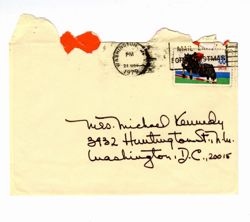 WASHINGTON
PM
1979
MAIL EARLY
FOR CHRISTMAS
Mrs. Michael Kennedy
3932 Huntington St., N.W.
Washington, D.C., 20015